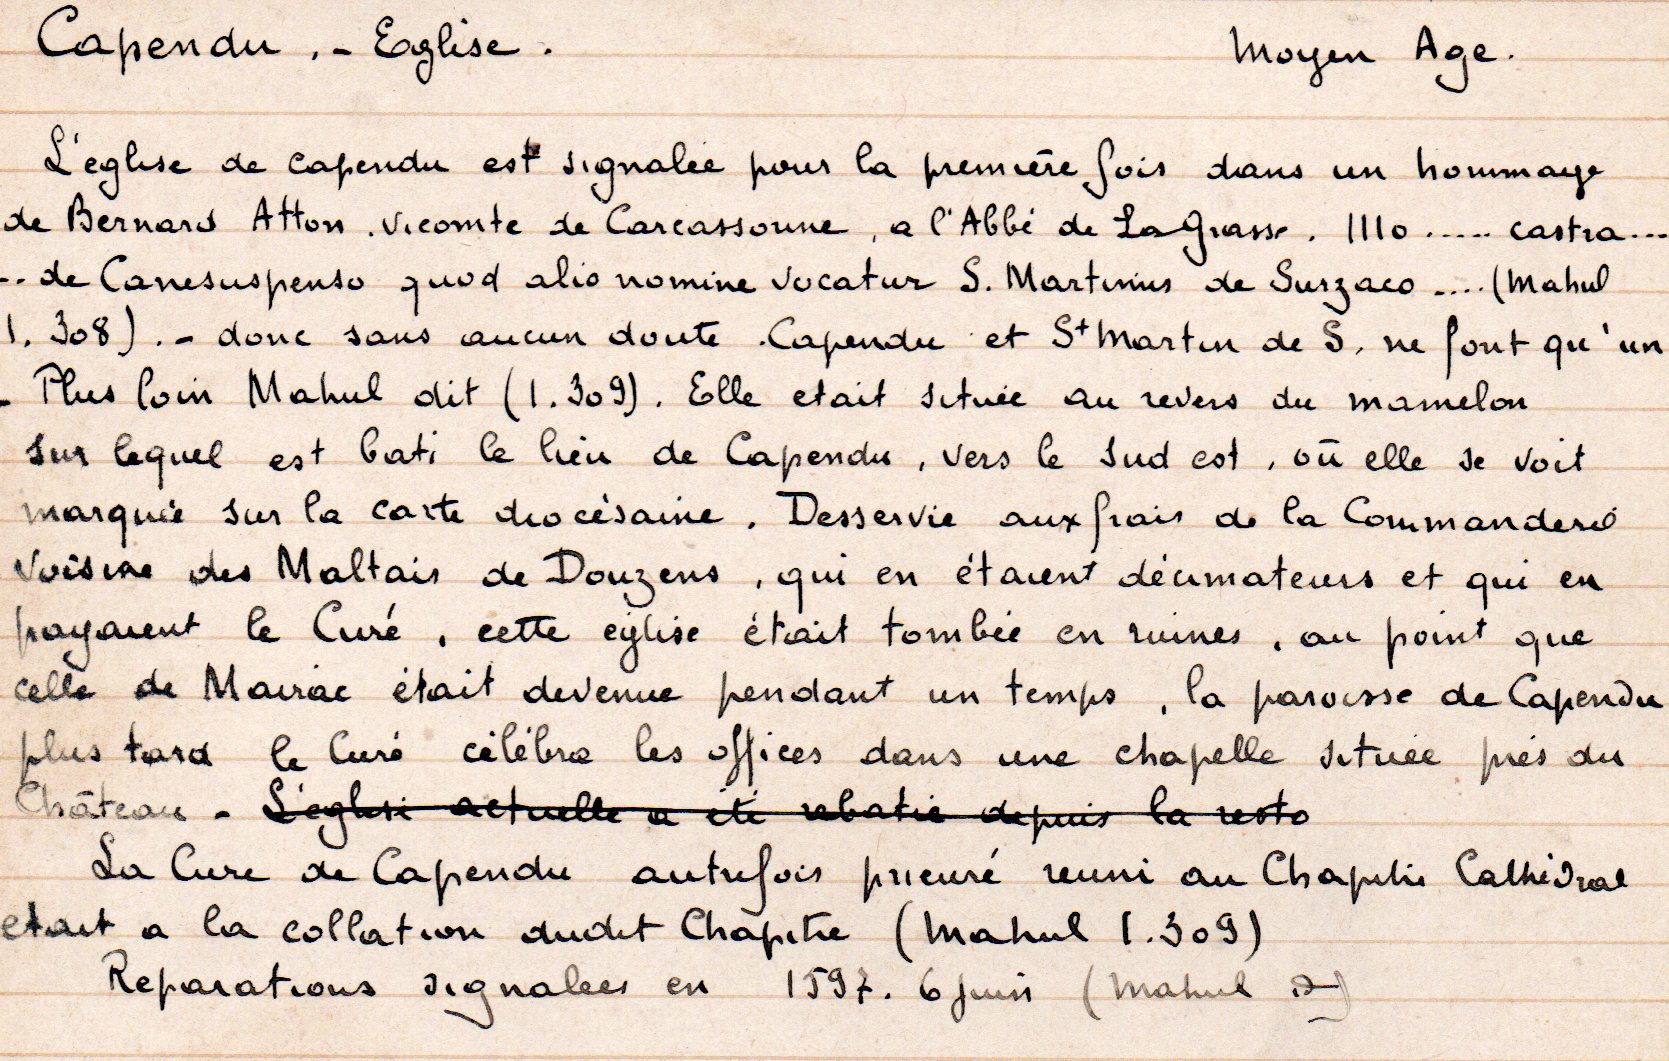 Capendu . - Eglise . Moyen Age .
L'eglise de capendu est signalée pour la première fois dans un hommage
de Bernard Atton . vicomte de Carcassonne , a l'Abbé de La Grasse . 1110 ..... castra ...
.. de Canesuspenso quod alio nomine vocatur S. Martinus de Surzaco .... (Mahul
1. 308) . - donc sans aucun doute . Capendu et St Martin de S. ne font qu'un
- Plus loin Mahul dit (1.309) . Elle etait située au revers du mamelon
sur lequel est bati le lieu de Capendu , vers le sud est , où elle se voit
marquée sur la carte diocésaine . Desservie aux frais de la Commanderie
voisine des Maltais de Douzens , qui en étaient décimateurs et qui en
payaient le Curé , cette église était tombée en ruines , au point que
celle de Mairac était devenue pendant un temps , la paroisse de Capendu
plus tard le Curé célébra les offices dans une chapelle située près du
Château - L'eglise actuelle a été rebatie depuis la resto
La Cure de Capendu autrefois prieuré reuni au Chapitre Cathédral
etait a la collation dudit Chapitre (Mahul 1.309)
Reparations signalées en 1597. 6 juin (Mahul )